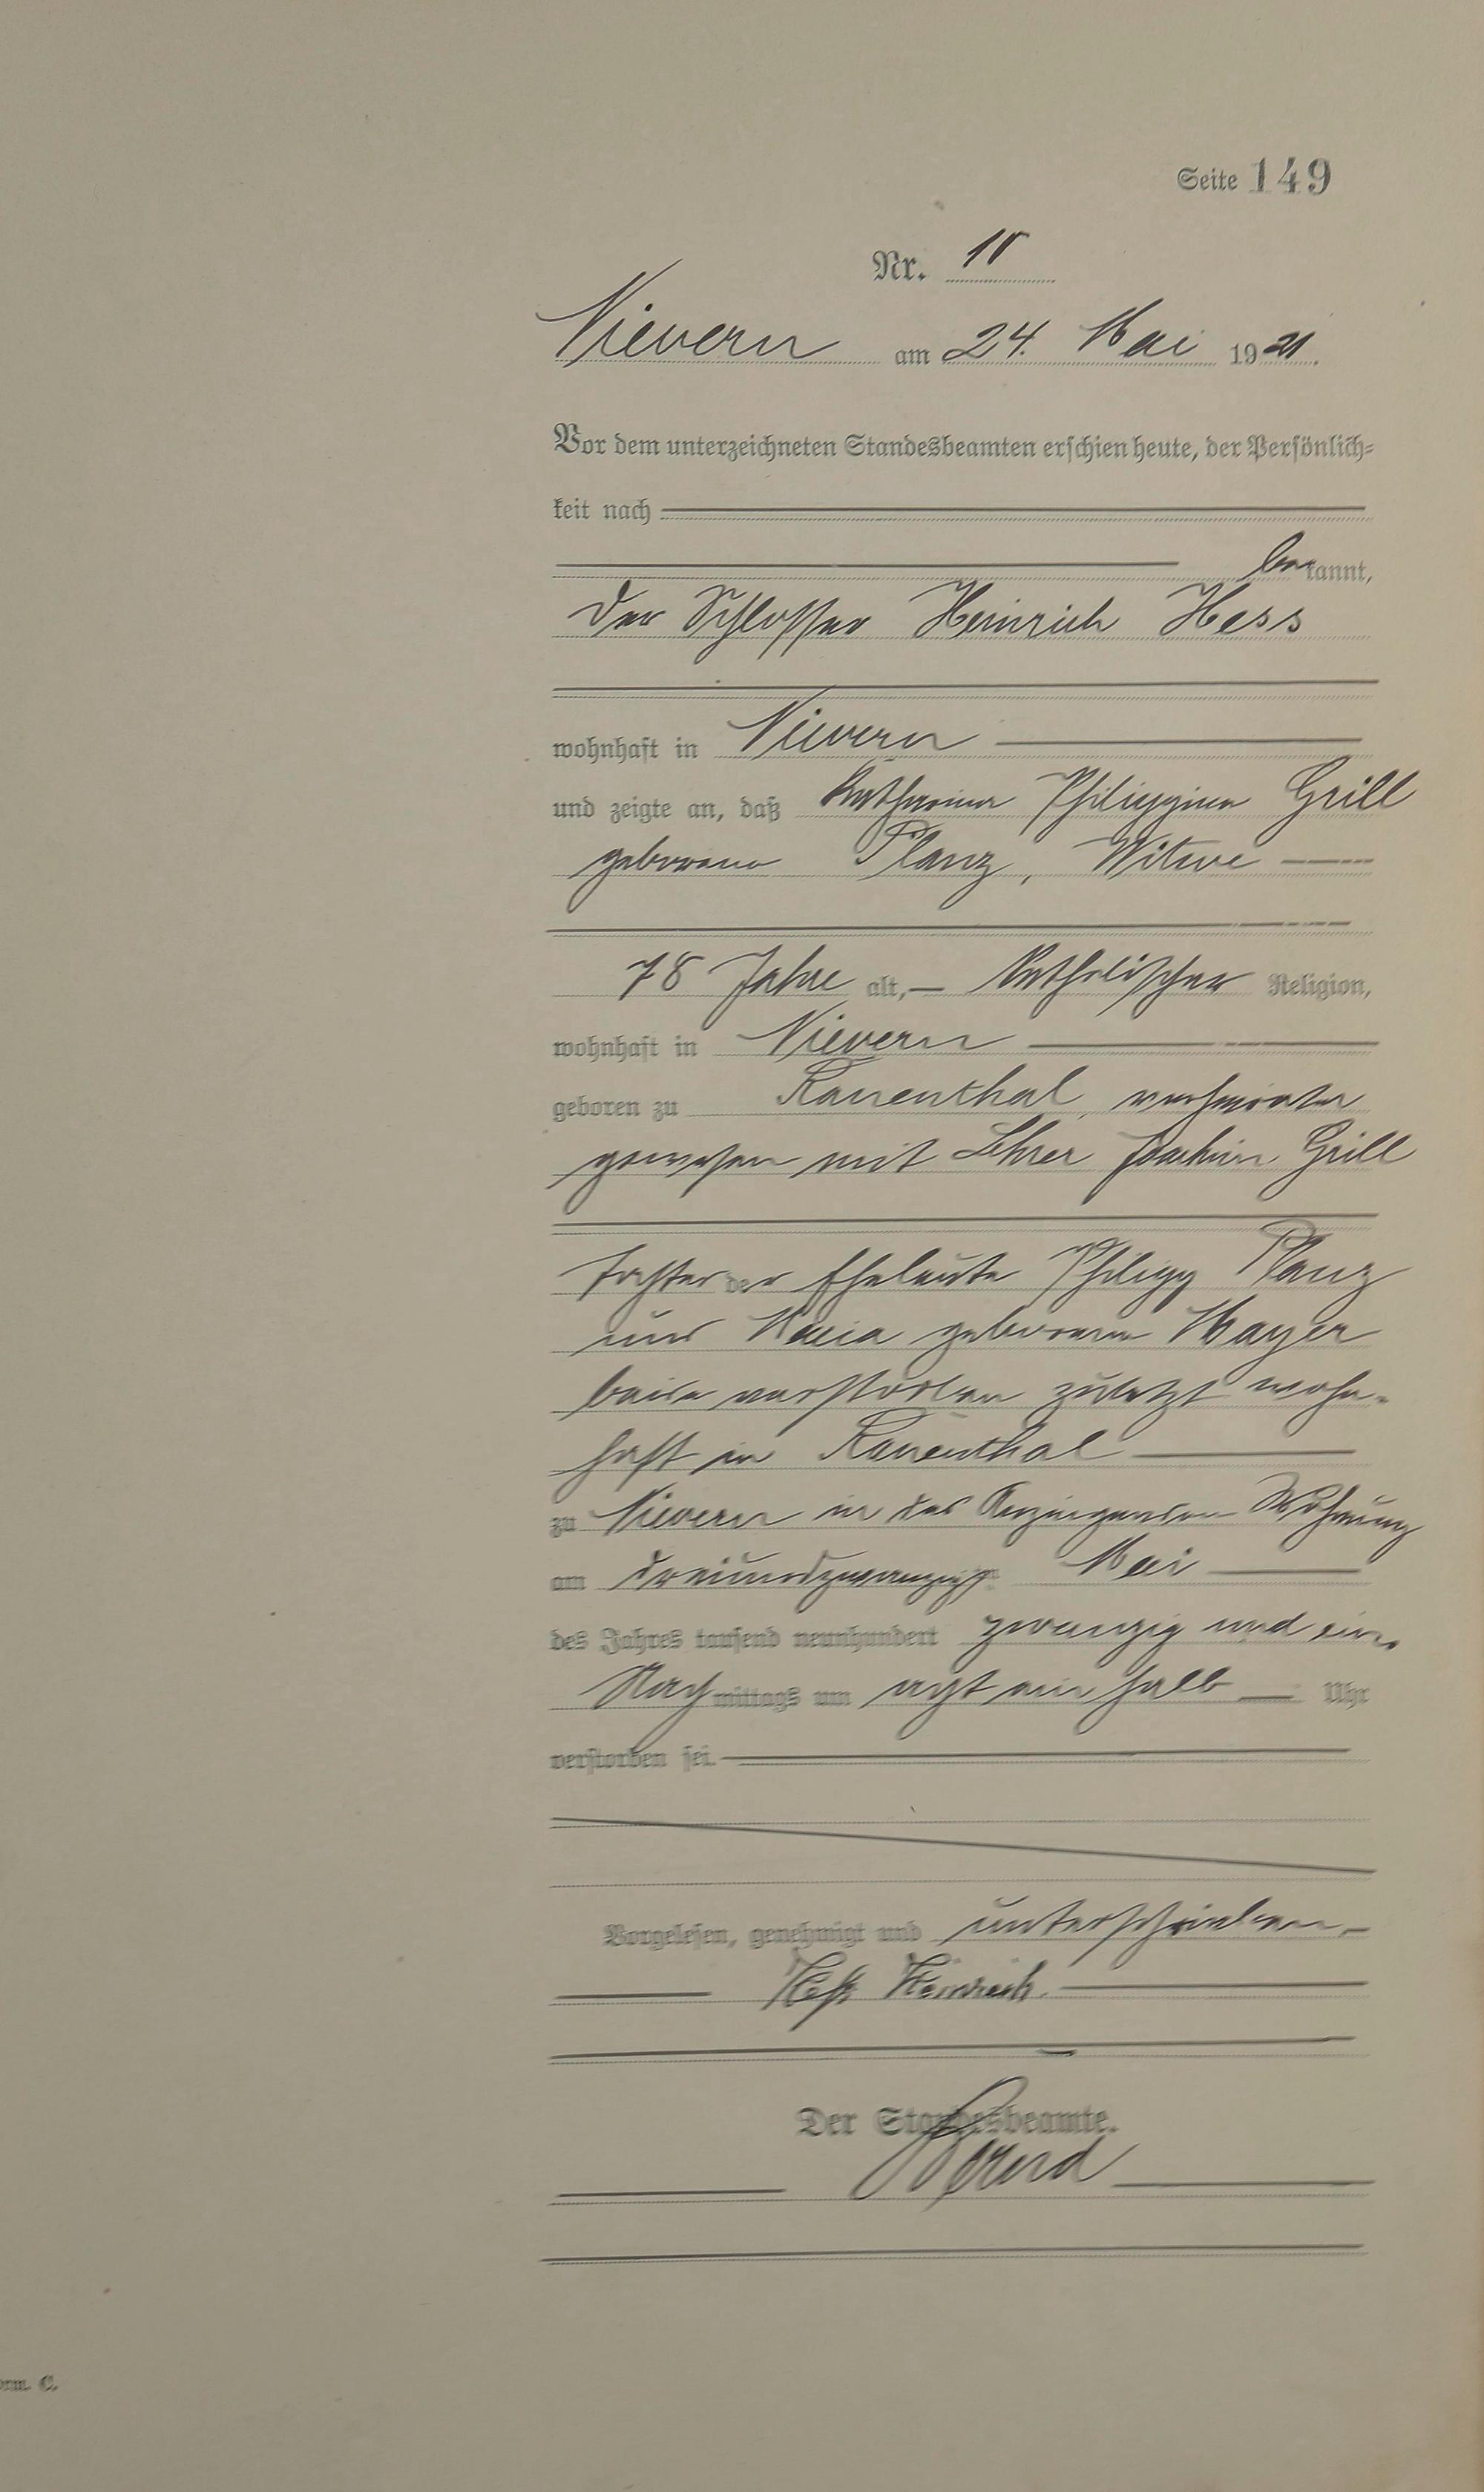 Seite 149
Nr. 10
Nievern am 24. Mai 1921.
Vor dem unterzeichneten Standesbeamten erschien heute, der Persönlich-
keit nach
bekannt,
der Schlosser Heinrich Hess
wohnhaft in Nievern
und zeigte an, daß Katharina Philippina Grill
geborene Planz, Witwe
78 Jahre alt, Katholischer Religion,
wohnhaft in Nievern
geboren zu Rauenthal, verheiratet
gewesen mit Lehrer Joachim Grill
Tochter der Eheleute Philipp Planz
und Maria geborene Mayer
beide verstorben zuletzt wohn-
haft in Rauenthal
zu Nievern in des Anzeigenden Wohnung
am dreiundzwanzigst Mai
des Jahres tausend neunhundert zwanzig und ein
Nachmittags um acht ein halb Uhr
verstorben sei.
Vorgelesen, genehmigt und unterschrieben
Heß Heinrich.
Der Standesbeamte.
orm. C.